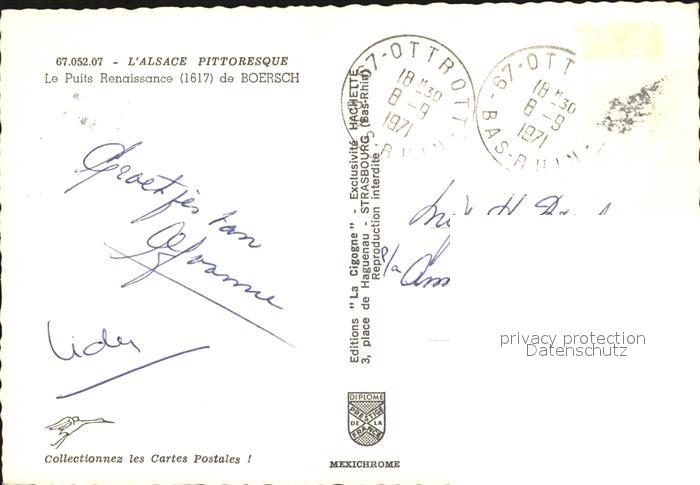 67.052.07 - L'ALSACE PITTORESQUE
Le Puits Renaissance (1617) de BOERSCH
Groetjes van
Lider
Collectionnez les Cartes Postales !
Editions "La Cigogne" - Exclusivité HACHETTE
3, place de Haguenau - STRASBOURG (Bas-Rhin)
Reproduction interdite
DIPLOME
PRESTIGE
DE LA
FRANCE
MEXICHROME
67-OTTROTT
18 H 30
8 -9
1971
RHIN
67-OTT
18 H 30
8 -9
1971
BAS-RHIN
p/a
privacy protection
Datenschutz